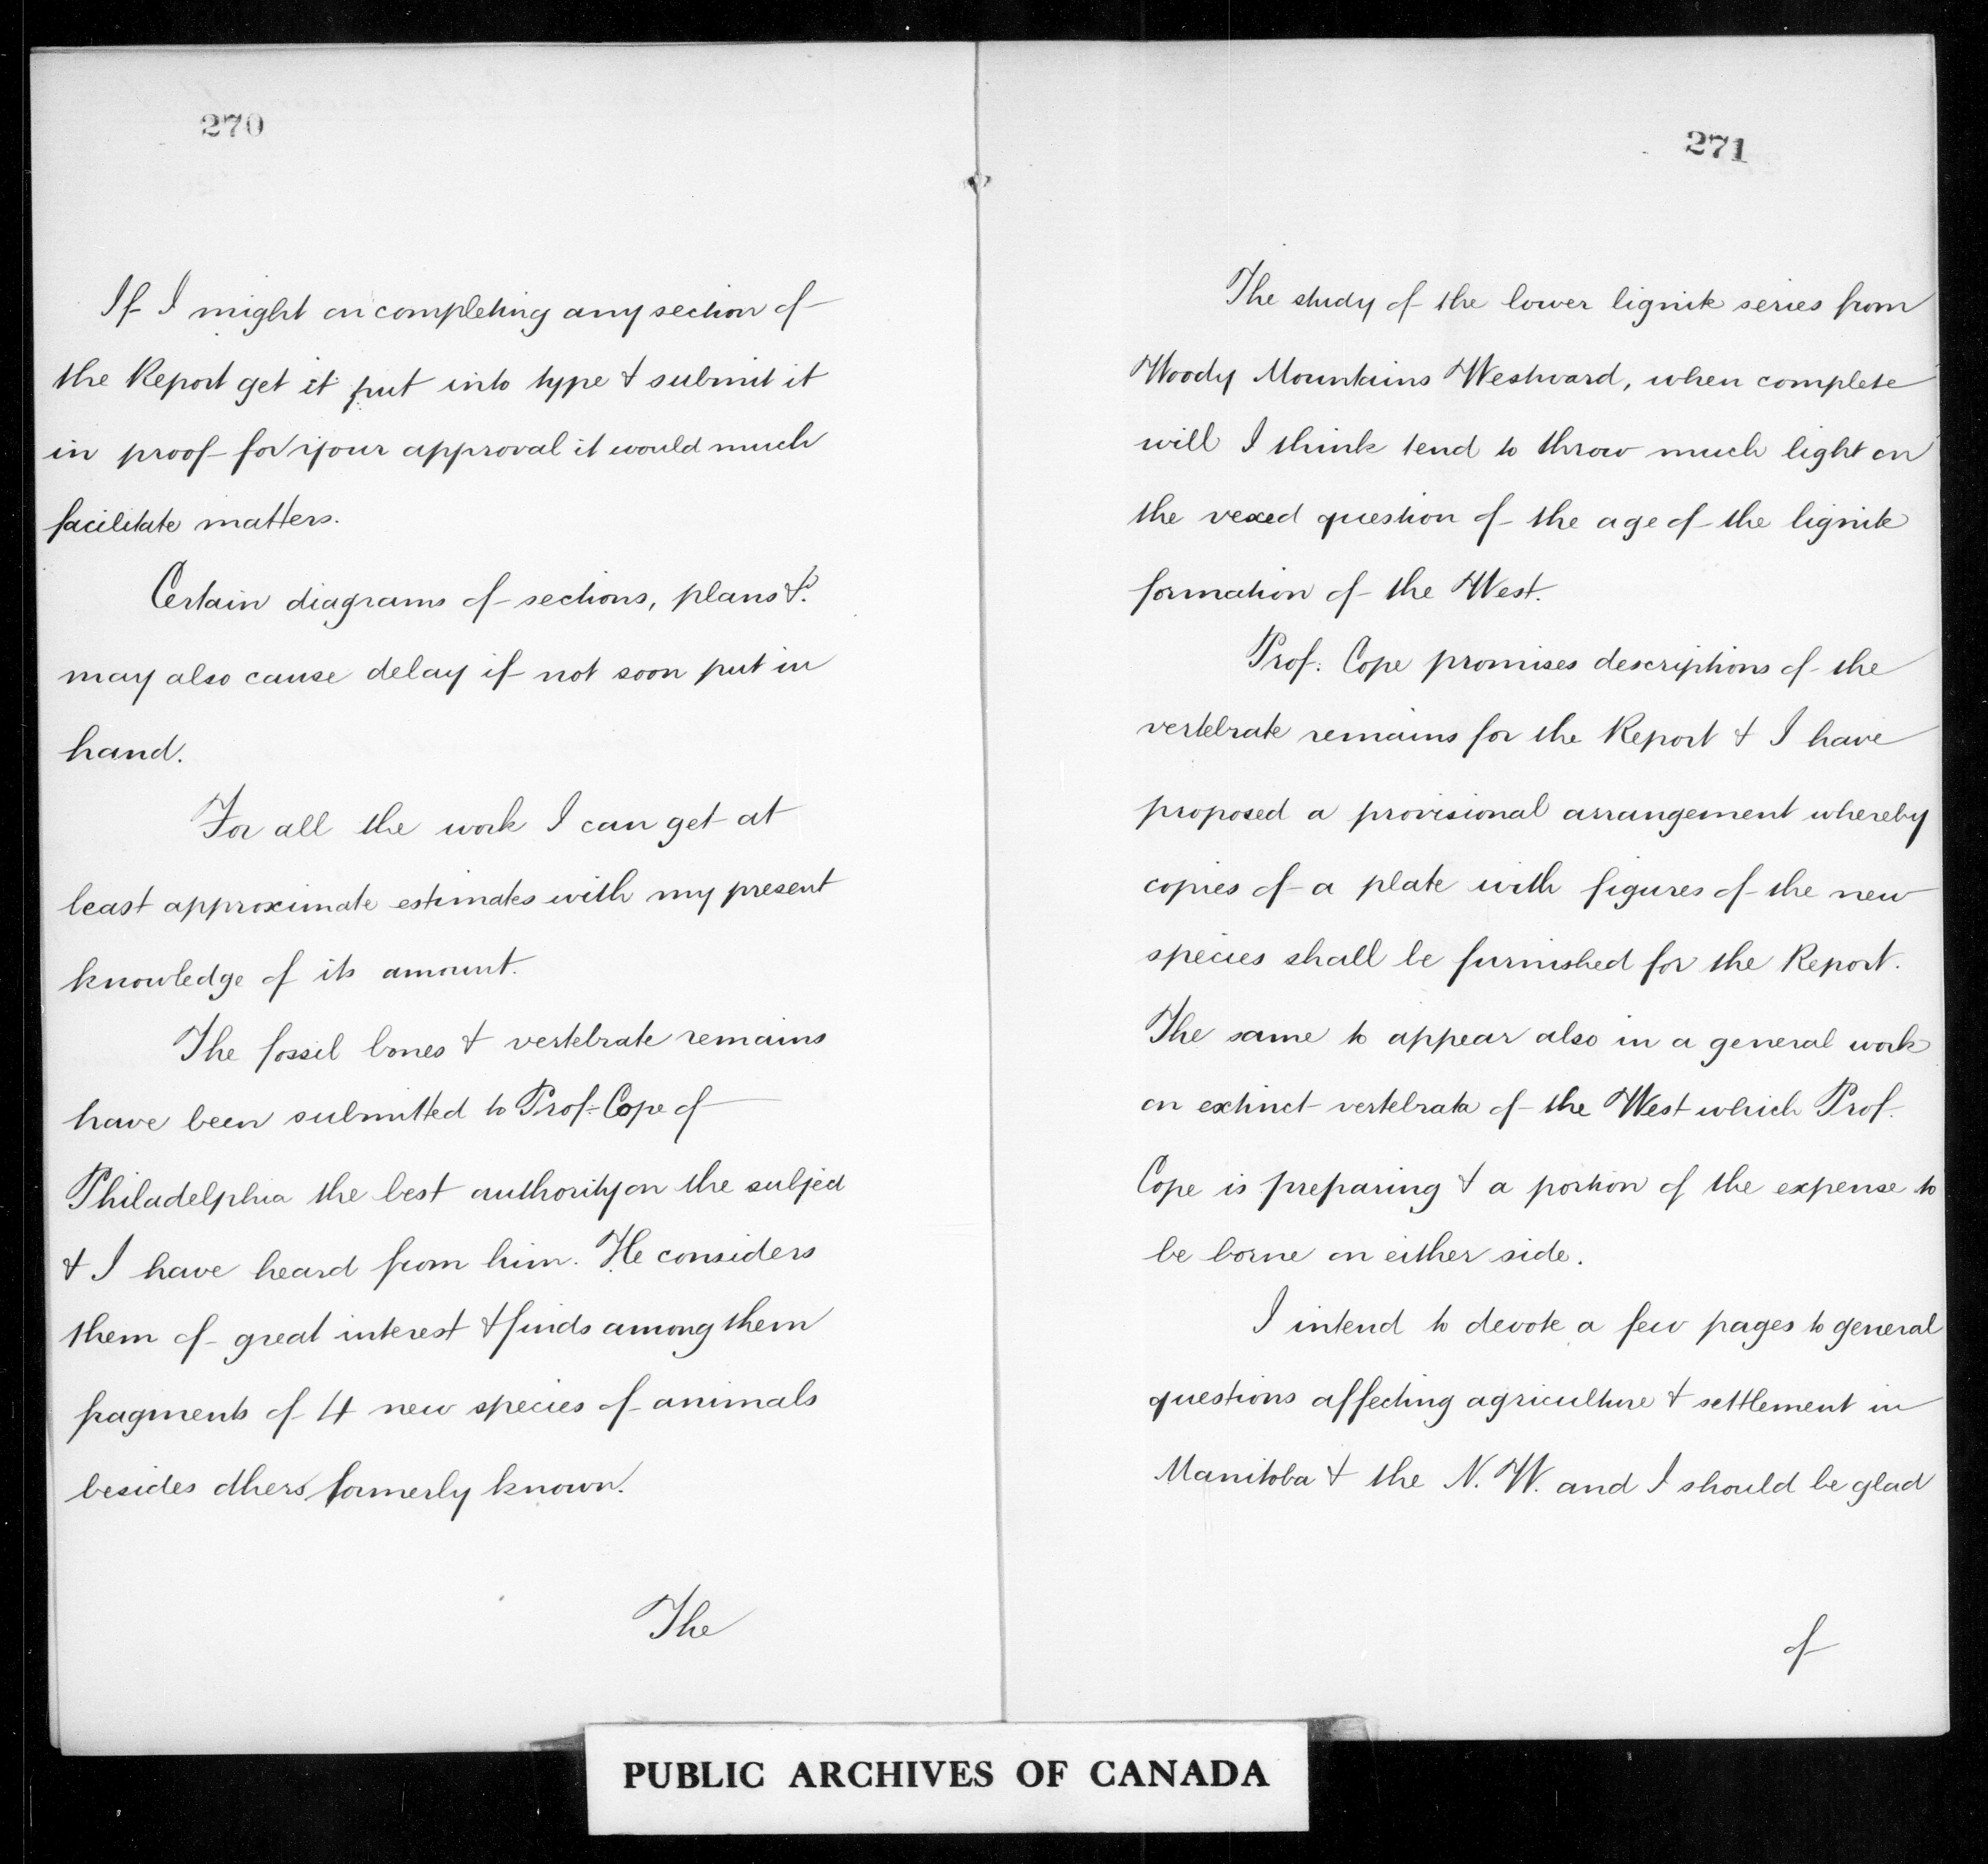 270
If I might on completing any section of
the Report get it put into type & submit it
in proof for your approval it would much
facilitate matters.
Certain diagrams of sections, plans &c
may also cause delay if not soon put in
hand.
For all the work I can get at
least approximate estimates with my present
knowledge of its amount.
The fossil bones & vertebrate remains
have been submitted to Prof. Cope of
Philadelphia the best authority on the subject
& I have heard from him. He considers
them of great interest & finds among them
fragments of 4 new species of animals
besides others formerly known.
The
271
The study of the lower lignite series from
Woody Mountains Westward, when complete
will I think tend to throw much light on
the vexed question of the age of the lignite
formation of the West.
Prof. Cope promises descriptions of the
vertebrate remains for the Report & I have
proposed a provisional arrangement whereby
copies of a plate with figures of the new
species shall be furnished for the Report.
The same to appear also in a general work
on extinct vertebrata of the West which Prof.
Cope is preparing & a portion of the expense to
be borne on either side.
I intend to devote a few pages to general
questions affecting agriculture & settlement in
Manitoba & the N. W. and I should be glad
of
PUBLIC ARCHIVES OF CANADA